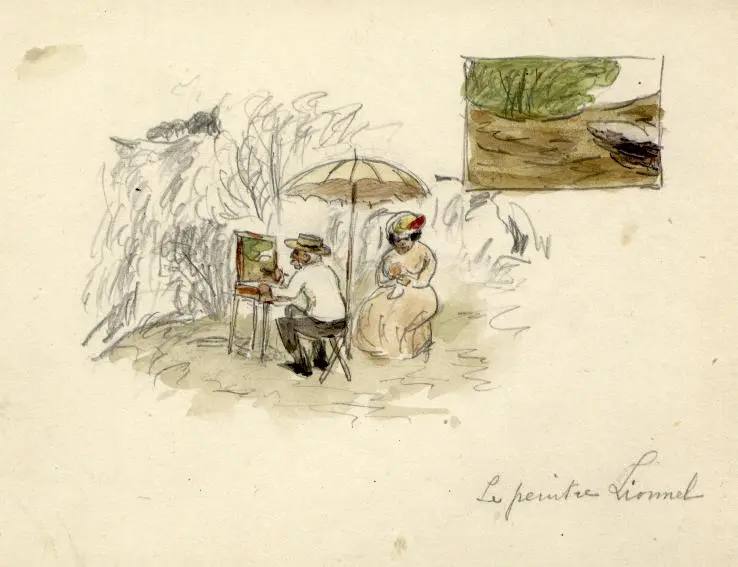 Le peintre Lionnel